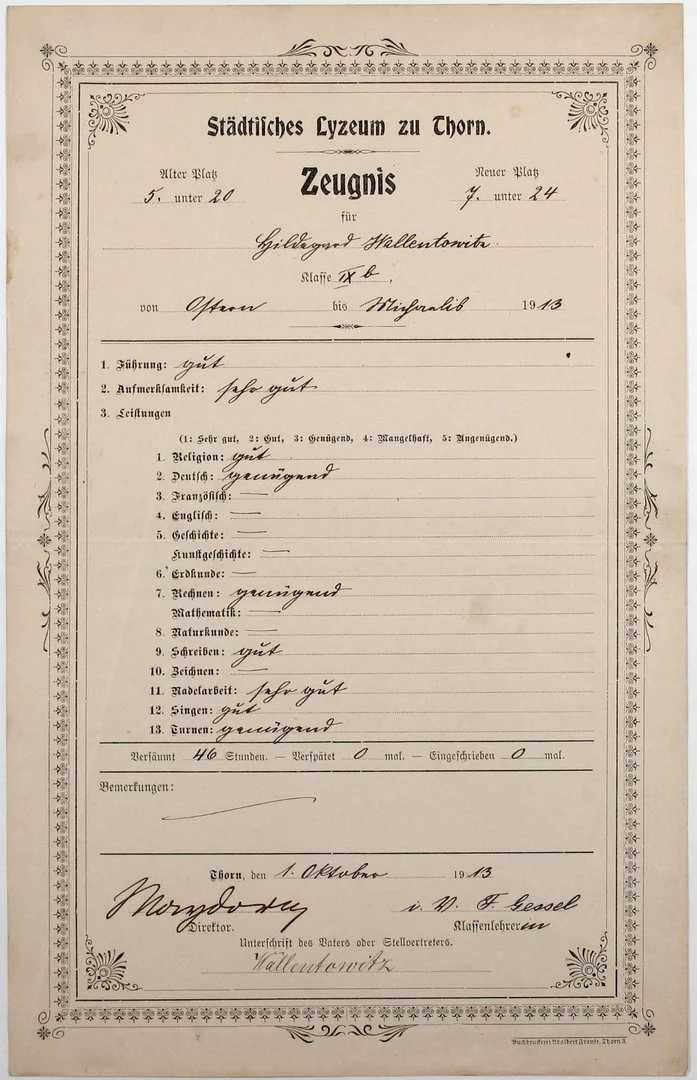 Städtisches Lyzeum zu Thorn.
Alter Platz Zeugnis Neuer Platz
5. unter 20 7. unter 24
für
Hildegard Wallentowitz.
Klasse IX b,
von Ostern bis Michaelis 1913
1. Führung: gut
2. Aufmerksamkeit: sehr gut
3. Leistungen
(1: Sehr gut, 2: Gut, 3: Genügend, 4: Mangelhaft, 5: Ungenügend.)
1. Religion: gut
2. Deutsch: genügend
3. Französisch: —
4. Englisch: —
5. Geschichte: —
Kunstgeschichte: —
6. Erdkunde: —
7. Rechnen: genügend
Mathematik: —
8. Naturkunde: —
9. Schreiben: gut
10. Zeichnen: —
11. Nadelarbeit: sehr gut
12. Singen: gut
13. Turnen: genügend
Versäumt 46 Stunden. — Verspätet 0 mal. — Eingeschrieben 0 mal.
Bemerkungen:
Thorn, den 1. Oktober 1913
Maydorn i. V. F. Gessel
Direktor. Klassenlehrerin
Unterschrift des Vaters oder Stellvertreters.
Wallentowitz
Buchdruckerei Adalbert Franke, Thorn 3.